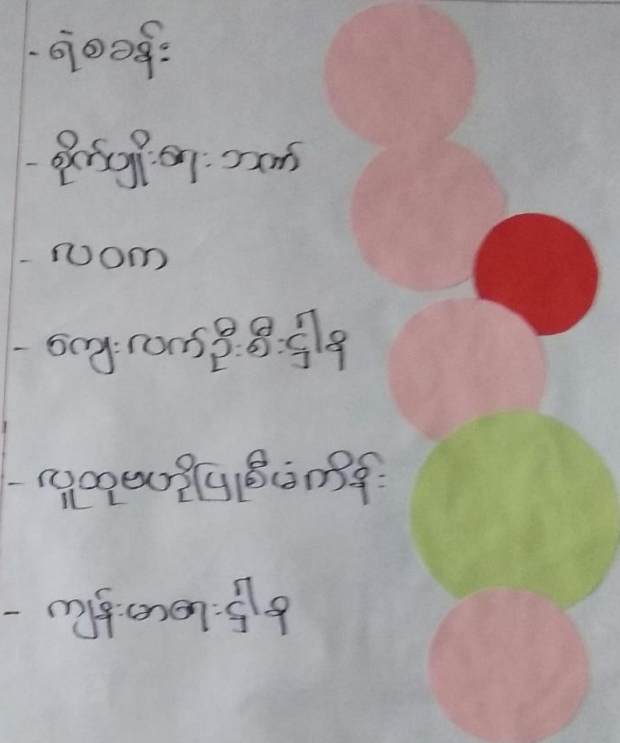 - ရဲစခန်း
- စိုက်ပျိုးရေးဘဏ်
- လ၀က
- ကျေးလက်ဦးစီးဌါန
- လူထုဗဟိုပြုစီမံကိန်း
- ကျန်းမာရေးဌါန